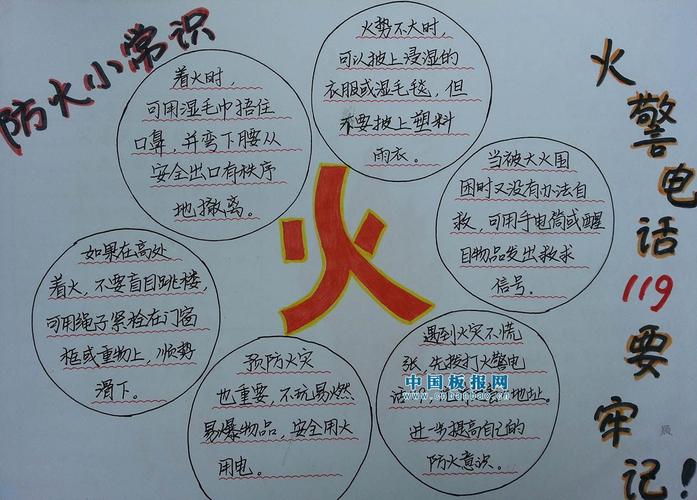 防火小常识
着火时，
可用湿毛巾捂住
口鼻，并弯下腰从
安全出口有秩序
地撤离。
火势不大时，
可以披上浸湿的
衣服或湿毛毯，但
不要披上塑料
雨衣。
当被大火围
困时又没有办法自
救，可用手电筒或醒
目物品发出救求
信号。
如果在高处
着火，不要盲目跳楼，
可用绳子紧栓在门窗
框或重物上，顺势
滑下。
预防火灾
也重要，不玩易燃
易爆物品，安全用火
用电。
遇到火灾不慌
张，先拨打火警电
话
地址。
进一步提高自己的
防火意识。
火
火警电话119要牢记！
中国板报网
www.cnbanbao.cn